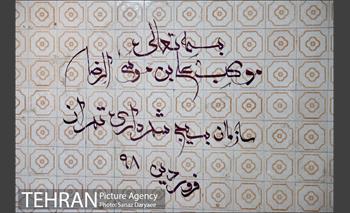 بسمه تعالی
موکب علی بن موسی الرضا
سازمان بسیج شهرداری تهران
فروردین ۹۸
TEHRAN Picture Agency
Photo: Sanaz Daryaee